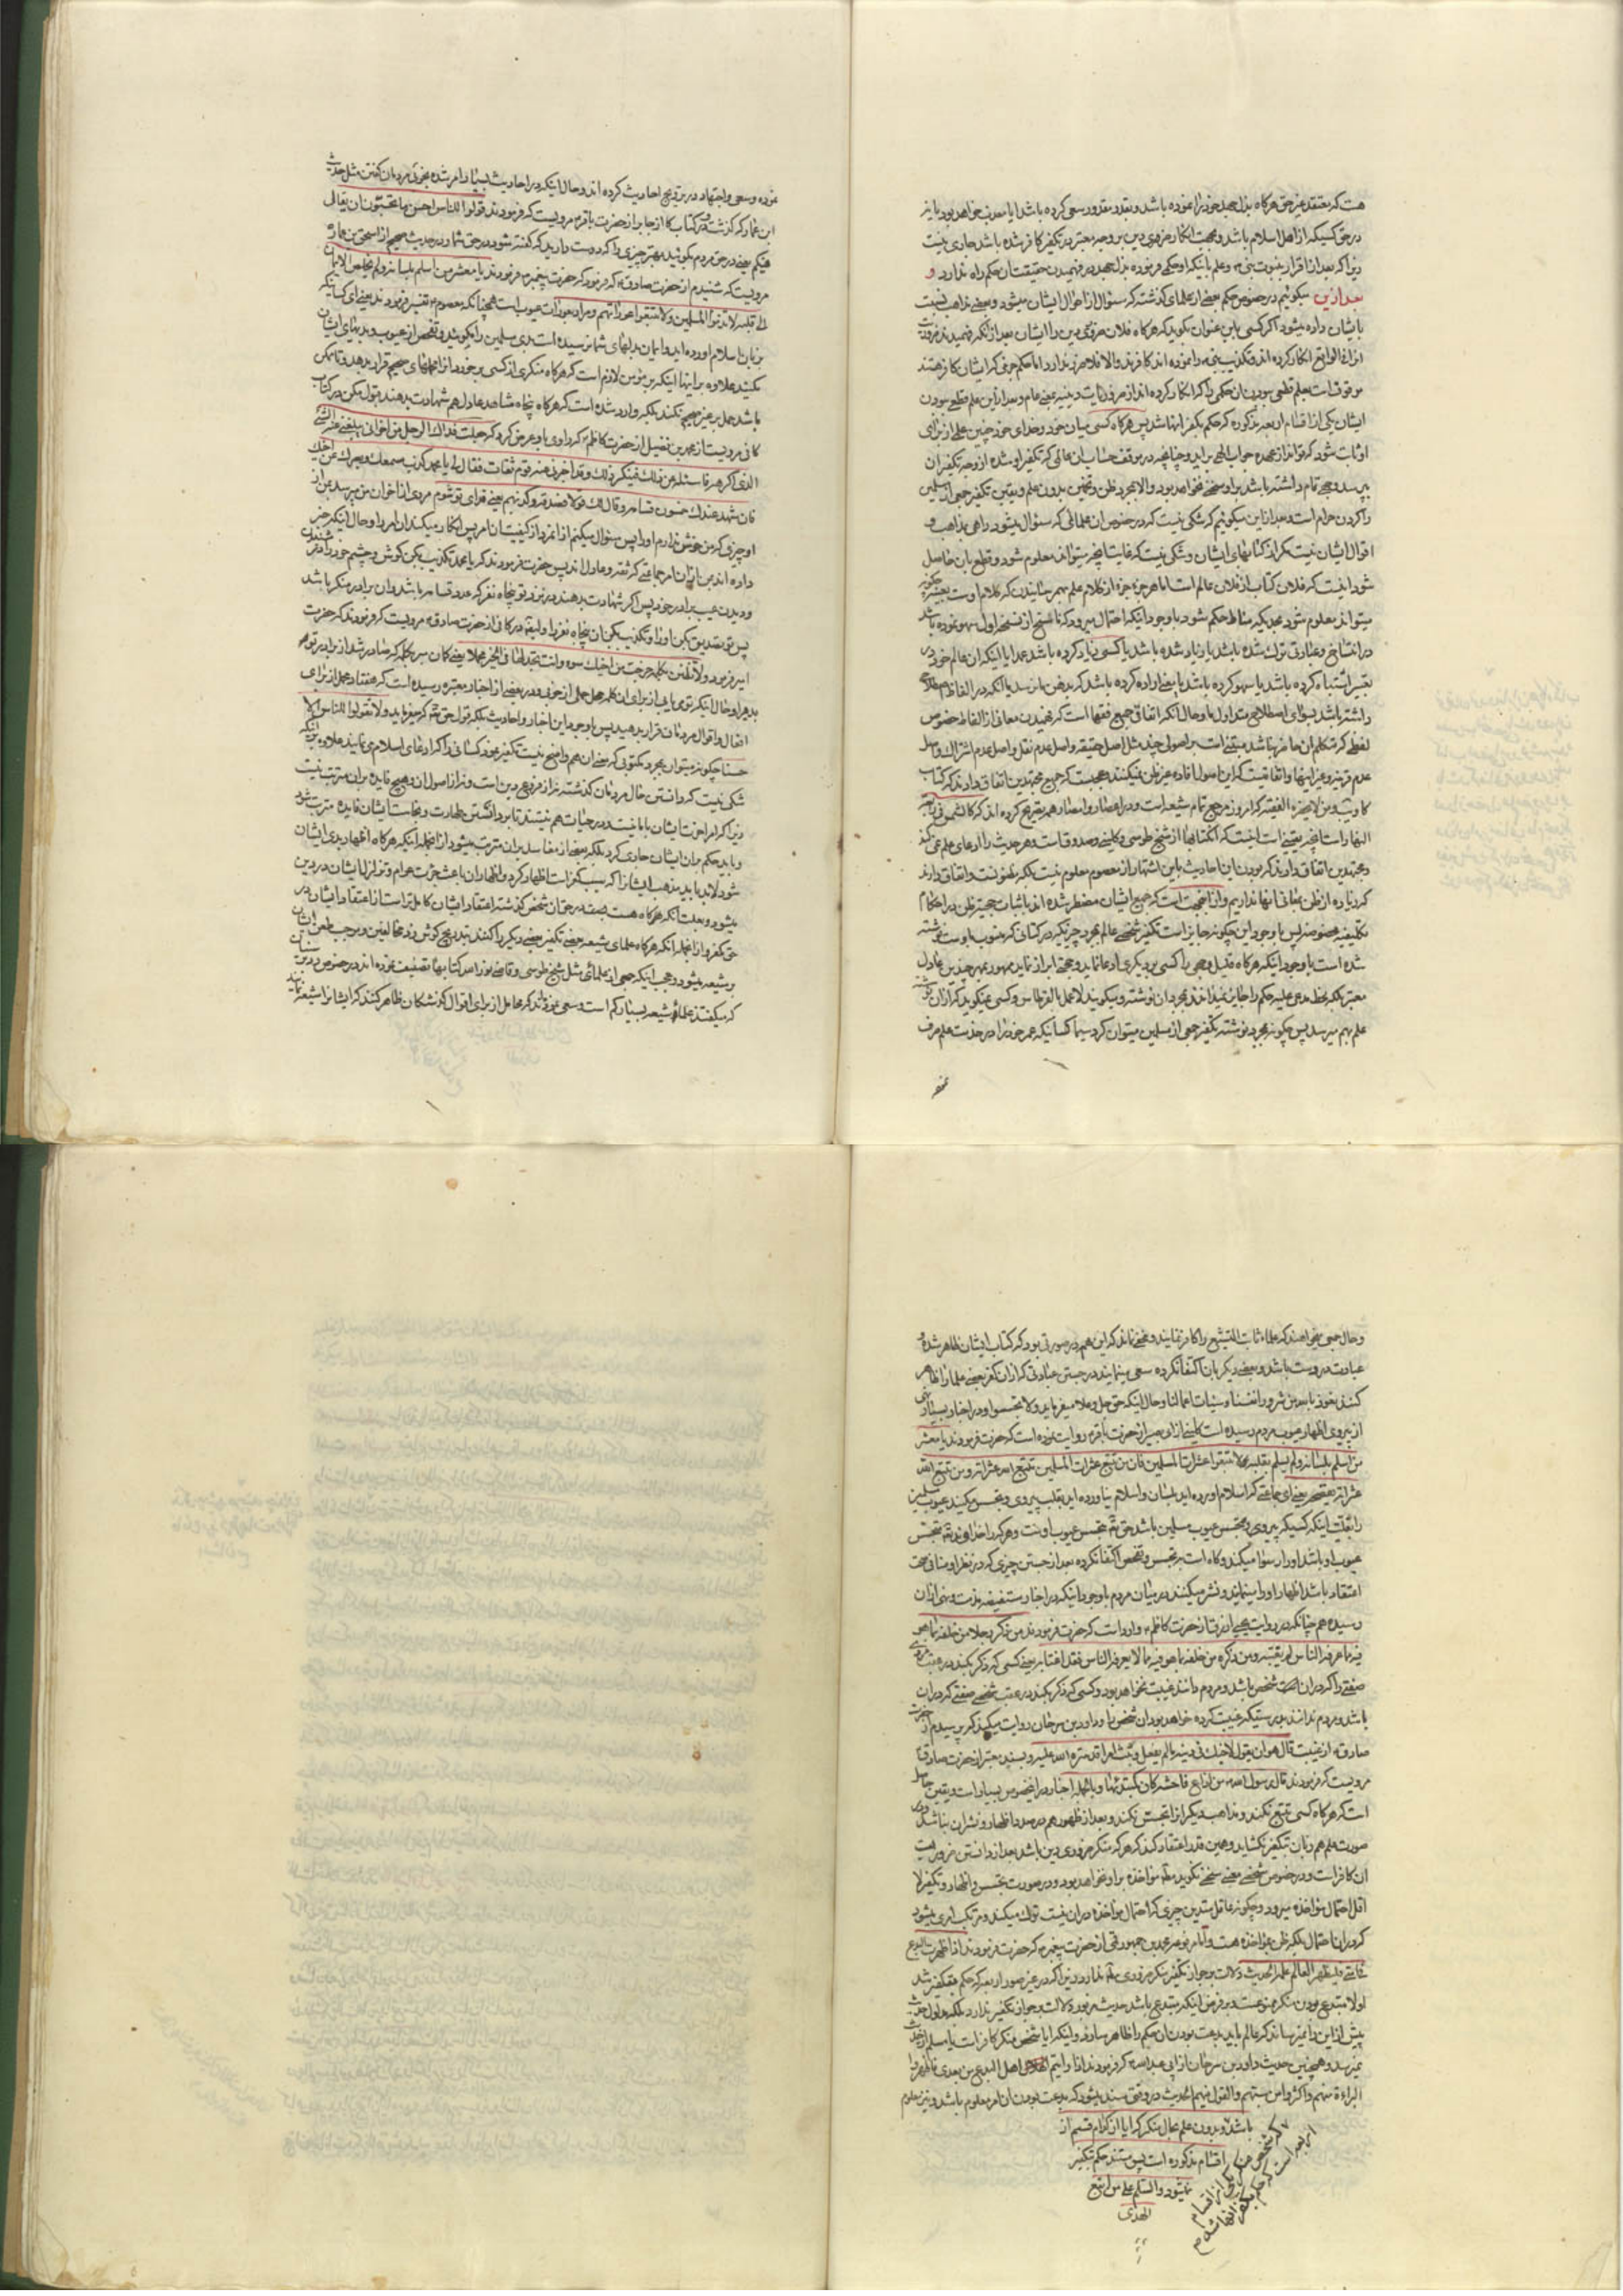 هست که معتقد غیر حق هرگاه بذل جهد خود را نموده باشد و بقدر مقدور سعی کرده باشد ایا معذب خواهد بود یا نه
در حق کسیکه از اهل اسلام باشد و بجهت انکار ضروری دین بر وجه معتبر در تکفیر کافر شده باشد جاری نیست
زیرا که بعد از اقرار بنبوت نبی و علم باینکه او حکمی فرموده بذل جهد در فهمیدن حقیقت ان حکم راه ندارد و
بعد از این میگوئیم در خصوص حکم بعضی از علمای گذشته که سئوال از احوال ایشان میشود و بعضی مذاهب نسبت
بایشان داده میشود اگر کسی باین عنوان بگوید که هرگاه فلان ضروری دین را ایشان بعد از انکه فهمیدند
انرا فی الواقع انکار کرده اند و تکذیب نبی را نموده اند کافرند والا فلا ضرری ندارد اما حکم جزمی که ایشان کافر هستند
موقوف است بعلم قطعی بودن ان حکمی را که انکار کرده اند از ضروریات دینیه و بعد از این علم قطعی بودن
ایشان یکی از اقسام اربعه مذکوره که حکم بکفر انها شد پس هرگاه کسی میان خود و خدای خود چنین علمی از برای
او ثابت شود که تواند از عهده جواب الهی بر اید و چنانچه در موقف حساب ان عالمی که تکفیر او شده از وجه تکفیر ان
بپرسد وجهی تمام داشته باشد بر او سخنی نخواهد بود والا بمجرد ظن و تخمین بدون علم و یقین تکفیر جمعی از مسلمین
را کردن حرام است و بعد از این میگوئیم که شکی نیست که در خصوص ان علمائی که سئوال میشود راهی بمذاهب و
اقوال ایشان نیست مگر از کتابهای ایشان و شکی نیست که غایت انچه میتواند معلوم شود و قطع بان حاصل
شود اینست که فلان کتاب از فلان عالم است اما هر جزء جزء از کلام علم بهم رسانیدن که کلام اوست بعینه چگونه
میتواند معلوم شود بحدیکه مناط حکم شود با وجود اینکه احتمال میرود که ناسخ از نسخه اول سهو نموده باشد
در انتساخ و عبارتی ترک شده باشد یا زیاد شده باشد یا کسی زیاد کرده باشد عمدا یا اینکه ان عالم خود در
تعبیر اشتباه کرده باشد یا سهو کرده باشد یا معنی اراده کرده باشد که بذهن ما نرسد یا انکه در الفاظ اصطلاحی
داشته باشد سوای اصطلاح متداول ما و حال انکه اتفاق جمیع فقها است که فهمیدن معانی از الفاظ خصوص
لفظی که متکلم ان حاضر نباشد مبتنی است بر اصولی چند مثل اصل حقیقه و اصل عدم نقل و اصل عدم اشتراک و اصل
عدم قرینه و غیر اینها و اتفاقیست که این اصول افاده غیر ظن نمیکنند و عجبست که جمیع مجتهدین اتفاق دارند که کتاب
کافی و تهذیب و من لا یحضره الفقیه که امروز مرجع تمام شیعه است و در اعصار و امصار همه تصریح کرده اند که کالشمس فی رابعة
النهار است انچه یقینی است اینست که انکتابها از شیخ طوسی و کلینی و صدوق است و هر حدیث را ادعای علم نمی کند
و مجتهدین اتفاق دارند که بودن این احادیث باین اشتهار از معصوم معلوم نیست بلکه مظنونست و اتفاق دارند
که زیاده از ظن بمعانی انها نداریم و از اینجهت است که جمیع ایشان مضطر شده اند باثبات حجیة ظن در احکام
تکلیفیه مخصوصه پس با وجود این چگونه جایز است تکفیر شخصی عالم بمجرد چیزیکه در کتابی که منسوب باوست نوشته
شده است با وجود اینکه هرگاه قتیل وجهی را کسی بر دیگری ادعا نماید و حجتی ابراز نماید ممهور بمهر چندین عادل
معتبر بلکه بخط مدعی علیه حکم را جایز نمیدانند بمجرد ان نوشته و میگویند لا عمل بالقرطاس و کسی نمیگوید که از ان نوشته
علم بهم میرسد پس چگونه بمجرد نوشته تکفیر جمعی از مسلمین میتوان کرد سیما کسانیکه عمر خود را در خدمت علم صرف
نموده و سعی و اجتهاد در ترویج احادیث کرده اند و حال اینکه در احادیث بسیار امر شده بخوبی مردمان گفتن مثل حدیث
ابن عمار که گذشت و در کتاب کافی از جابر از حضرت باقر مرویست که فرمودند قولوا للناس احسن ما تحبون ان یقال
فیکم یعنی در حق مردم بگوئید بهتر چیزی را که دوست دارید که گفته شود در حق شما و در حدیث صحیح از اسحق بن عمار
مرویست که شنیدم از حضرت صادق که فرمود که حضرت پیغمبر فرمودند یا معشر من اسلم بلسانه و لم یخلص الایمان
الی قلبه لا تذموا المسلمین و لا تتبعوا عوراتهم و مراد بعورات عیوب است همچنانکه معصوم تفسیر فرمودند یعنی ای کسانیکه
بزبان اسلام اورده اید و ایمان بدلهای شما نرسیده است بدی مسلمین را مگوئید و تفحص از عیوب و بدیهای ایشان
مکنید علاوه بر اینها اینکه بر مؤمن لازم است که هرگاه منکری از کسی بر خورد انرا محملهای صحیح قرار بدهد و تا ممکن
باشد حمل بر غیر صحیح نکند بلکه وارد شده است که هرگاه پنجاه شاهد عادل هم شهادت بدهند قبول مکن در کتاب
کافی مرویست از محمد بن فضیل از حضرت کاظم که راوی باو عرض کرد که جعلت فداک الرجل من اخوانی یبلغنی عنه الشئ
الذی اکرهه فاسئله عن ذلک فینکر ذلک و قد اخبرنی عنه قوم ثقات فقال لی یا محمد کذب سمعک و بصرک عن اخیک
فان شهد عندک خمسون قسامة و قال لک قولا فصدقه و کذبهم یعنی فدای تو شوم مردی از اخوان من میرسد بمن از
او چیزی که من خوش ندارم او را پس سئوال میکنم از انمرد از کیفیت ان امر پس انکار میکند ان امر را و حال اینکه خبر
داده اند بمن از ان امر جماعتی که ثقه و عادل اند پس حضرت فرمودند که یا محمد تکذیب بکن گوش و چشم خود را در شنیدن
و دیدن عیب برادر خود پس اگر شهادت بدهند در نزد تو پنجاه نفر که عدد قسامه باشد و ان برادر منکر باشد
پس تو تصدیق بکن او را و تکذیب بکن ان پنجاه نفر را و ایضا در کافی از حضرت صادق مرویست که فرمودند که حضرت
امیر فرمود ولا تظنن بکلمة خرجت من اخیک سوء و انت تجد لها فی الخیر محملا یعنی گمان مبر بکلمه که صادر شد از برادر تو
بدی را و حال اینکه تو می یابی از برای ان کلمه محمل حملی از خوبی و در بعضی از اخبار معتبره رسیده است که هفتاد محمل از برای
افعال و اقوال مردمان قرار بدهید پس با وجود این اخبار و احادیث بلکه قول حق تعالی که میفرماید و لا تقولوا للناس الا
حسنا چگونه میتوان بمجرد مکتوبی که معنی ان هم واضح نیست تکفیر نمود کسانی را که ادعای اسلام می نمایند علاوه بر اینکه
شکی نیست که دانستن حال مردمان گذشته نه از فروع دین است و نه از اصول ان و هیچ فایده بر ان مترتب نیست
زیرا که امر اخرت ایشان با ما نیست و در حیات هم نیستند تا بر دانستن طهارت و نجاست ایشان فایده مترتب شود
و باید حکم بر ان ایشان جاری کرد بلکه بعضی از مفاسد بر ان مترتب میشود از انجمله اینکه هرگاه اظهار بدی ایشان
شود لابد باید مذهب ایشان را که سبب کفر است اظهار کرد و اظهار ان باعث جرئت عوام و تزلزل ایشان در دین
میشود و بعلت انکه هرگاه هست صفت در حق ان شخص گذشته اعتقاد ایشان کامل تر است از اعتقاد ایشان در
حق مکفر و از انجمله انکه هرگاه علمای شیعه بعضی تکفیر بعضی دیگر را کنند بتدریج گوش زد مخالفین و موجب طعن ایشان
بر شیعه میشود و عجب اینکه جمعی از علمائی مثل شیخ طوسی و قاضی نور الله کتابها تصنیف نموده اند در خصوص رد
که میگفتند علمای شیعه بسیار کم است و سعی نموده اند که محامل از برای اقوال گذشتگان ظاهر کنند که ایشان را شیعه نمایند
و حال جمعی میخواهند که علماء ثابت التشیع را کافر نمایند و مخفی نماند که این هم در صورتی بود که کتاب ایشان ظاهر شده و
عبارت درست باشد و بعضی دیگر بان اکتفا نکرده سعی مینمایند در جستن عبارتی که از ان کفر بعضی علما را ظاهر
کنند نعوذ بالله من شرور انفسنا و سیئات اعمالنا و حال اینکه حق جل و علا میفرماید و لا تجسسوا و در اخبار بسیار نهی
از پیروی اظهار عیوب مردم رسیده است کلینی از ابی بصیر از حضرت باقر روایت نموده است که حضرت فرمودند یا معشر
من اسلم بلسانه و لم یسلم بقلبه لا تتبعوا عثرات المسلمین فان من تتبع عثرات المسلمین تتبع الله عثراته و من تتبع الله
عثراته یفضحه یعنی ای جماعتی که اسلام اورده اید بلسان و اسلام نیاورده اید بقلب پیروی و تجسس مکنید عیوب مسلمین
را بعلت اینکه کسیکه پیروی و تجسس عیوب مسلمین باشد حق تعالی تجسس عیوب اوست و هر که را خداوند تعالی تجسس
عیوب او باشد او را رسوا میکند و گاه است بر تجسس و تفحص اکتفا نکرده بعد از جستن چیزی که در نظر او منافی صحت
اعتقاد باشد اظهار او را مینمایند و نشر میکنند در میان مردم با وجود اینکه در اخبار مستفیضه مذمت و نهی از ان
رسیده همچنانکه در روایت یحیی ازرق از حضرت کاظم وارد است که حضرت فرمودند من ذکر رجلا من خلفه بما هو
فیه مما عرفه الناس لم یغتبه و من ذکره من خلفه بما هو فیه مما لا یعرفه الناس فقد اغتابه یعنی کسی که ذکر بکند در عقب مردی
صفتی را که در ان شخص باشد و مردم دانند غیبت نخواهد بود و کسی که ذکر بکند در عقب شخصی صفتی که در ان
باشد و مردم ندانند بدرستیکه غیبت کرده خواهد بود ان شخص را و داود بن سرحان روایت میکند که پرسیدم از حضرت
صادق از غیبت قال هو ان تقول لاخیک فی دینه ما لم یفعل و تبث امرا قد ستره الله علیه و بسند معتبر از حضرت صادق
مرویست که فرمودند قال رسول الله من اذاع فاحشة کان کمبتدئها و بالجمله اخبار در این خصوص بسیار است و یقین حاصل
است که هرگاه کسی تتبع نکند و مذاهب دیگر انرا تجسس نکند و بعد از ظهور هم در صدد اظهار و نشر ان نباشد و در
صورت علم هم زبان بتکفیر نگشاید و همین قدر اعتقاد کند که هر که منکر ضروری دین باشد بعد از دانستن ضروریت
ان کافر است و در خصوص شخصی معین سخنی نگوید مؤاخذه بر او نخواهد بود و در صورت تجسس و اظهار و تکفیر لا
اقل احتمال مؤاخذه میرود و چگونه عاقل متدین چیزی که احتمال مؤاخذه در ان نیست ترک میکند و مرتکب امری میشود
که در ان احتمال بلکه ظن مؤاخذه هست و اما مرفوعه محمد بن جمهور قمی از حضرت پیغمبر که حضرت فرمودند اذا ظهرت البدع
فی امتی فلیظهر العالم علمه الحدیث دلالت بر جواز تکفیر منکر ضروری ندارد زیرا که در غیر صور اربعه که حکم بکفر شد
اولا مبتدع بودن منکر ممنوعست و بر فرض اینکه مبتدع باشد حدیث مزبور دلالت بر جواز تکفیر ندارد بلکه مدلول حدیث
بیش از این را نمیرساند که عالم باید بدعت بودن ان حکم را ظاهر سازد و اینکه ایا شخص منکر کافر است یا مسلم از حدیث
نمیرسد و همچنین حدیث داود بن سرحان از ابی عبدالله که فرمودند اذا رایتم اهل البدع من بعدی فاظهروا
البراءة منهم و اکثروا من سبهم و القول فیهم الحدیث در وقتی سند میشود که بدعت بودن ان امر معلوم باشد و نیز معلوم
باشد و بدون علم بحال منکر که ایا از کدام قسم از
اقسام مذکوره است پس مستند حکم بتکفیر
نمیشود والسلام علی من اتبع
الهدی